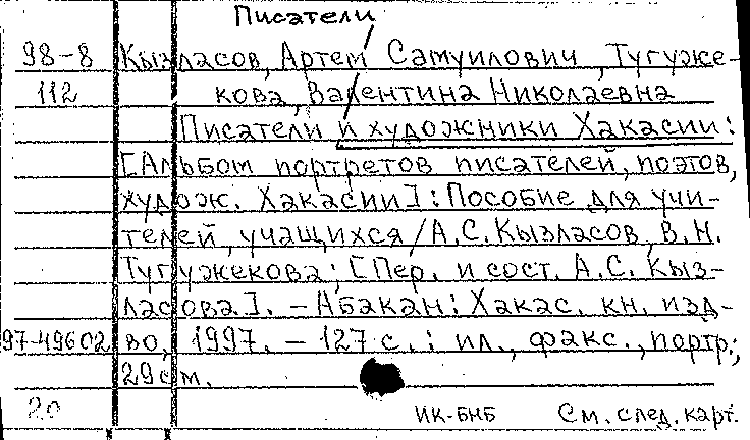 Писатели
98-8 Кызласов, Артем Самуилович, Тугуже-
112 кова, Валентина Николаевна
Писатели и художники Хакасии:
[Альбом портретов писателей, поэтов,
худож. Хакасии]: Пособие для учи-
телей, учащихся / А.С. Кызласов, В.Н.
Тугужекова; [Пер. и сост. А.С. Кыз-
ласова]. - Абакан: Хакас. кн. изд-
97-49602 во, 1997. - 127 с.: ил., факс., портр.;
29см.
20 ИК-БНБ См. след. карт.